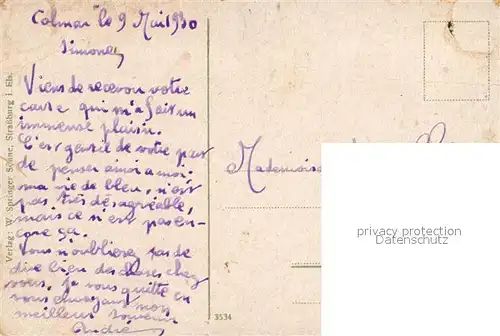 Colmar le 9 Mai 1930
Simone,
Viens de recevoir votre
carte qui m'a fait un
immense plaisir.
C'est gentil de votre part
de penser ainsi a moi.
ma vie de bleu, n'est
pas très désagréable,
mais ce n'est pas en-
core ça.
Vous n'oublierez pas de
dire bien des choses chez
vous. Je vous quitte en
vous envoyant mon
meilleur souvenir
André
Mademoise
Verlag: W. Springer Söhne, Straßburg i. Els.
3534
privacy protection
Datenschutz